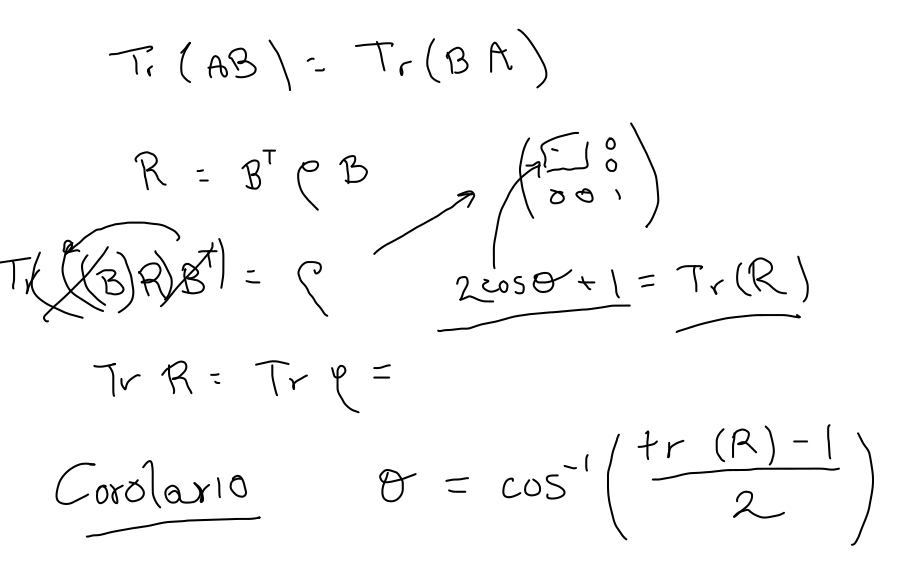 Tr (AB) = Tr (B A)
R = Bᵀ ρ B
0
0
0 0 1
Tr(((B)R)Bᵀ) = ρ
2cosθ + 1 = Tr(R)
Tr R = Tr ρ =
Corolario θ = cos⁻¹ ( tr (R) - 1 / 2 )